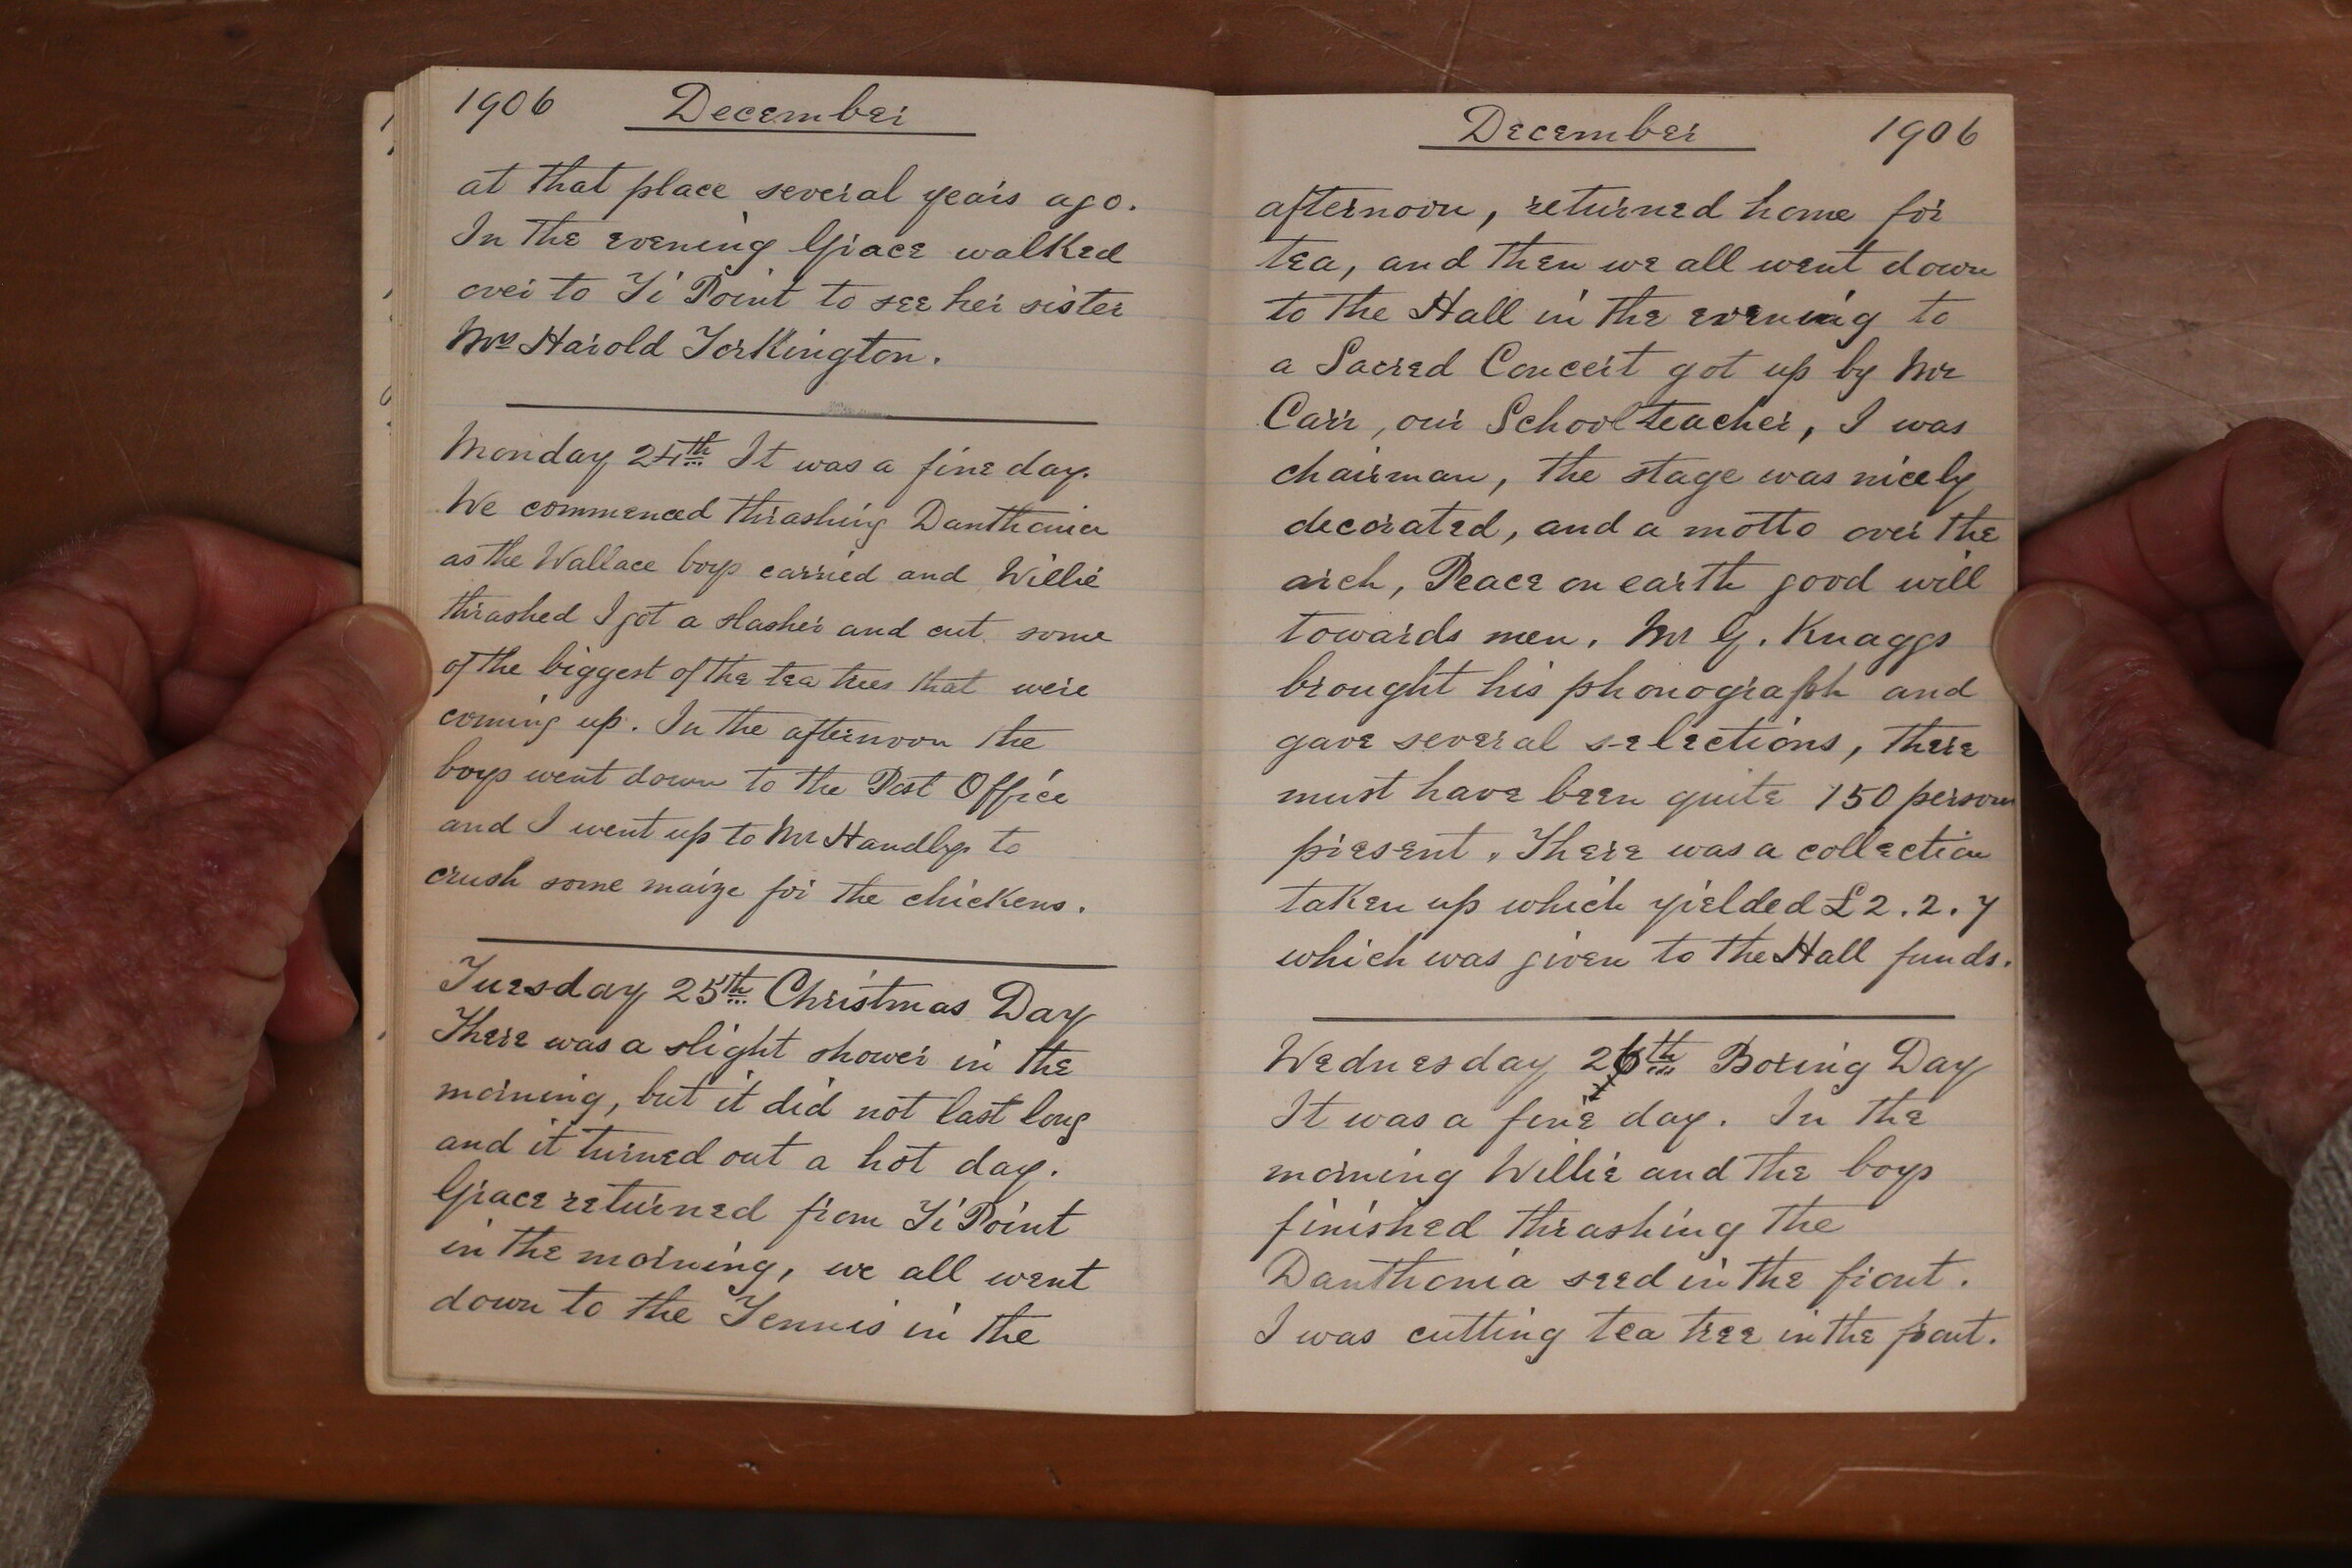 1906 December
at that place several years ago.
In the evening Grace walked
over to Ti Point to see her sister
Mrs Harold Torkington.
Monday 24th It was a fine day.
We commenced thrashing Danthonia
as the Wallace boys carried and Willie
thrashed I got a slasher and cut some
of the biggest of the tea trees that were
coming up. In the afternoon the
boys went down to the Post Office
and I went up to Mr Handlys to
crush some maize for the chickens.
Tuesday 25th Christmas Day
There was a slight shower in the
morning, but it did not last long
and it turned out a hot day.
Grace returned from Ti Point
in the morning, we all went
down to the Tennis in the
December 1906
afternoon, returned home for
tea, and then we all went down
to the Hall in the evening to
a Sacred Concert got up by Mr
Carr, our School teacher, I was
chairman, the stage was nicely
decorated, and a motto over the
arch, Peace on earth good will
towards men. Mr G. Knaggs
brought his phonograph and
gave several selections, there
must have been quite 150 persons
present. There was a collection
taken up which yielded £2.2.7
which was given to the Hall funds.
Wednesday 26th Boxing Day
It was a fine day. In the
morning Willie and the boys
finished thrashing the
Danthonia seed in the front.
I was cutting tea tree in the front.